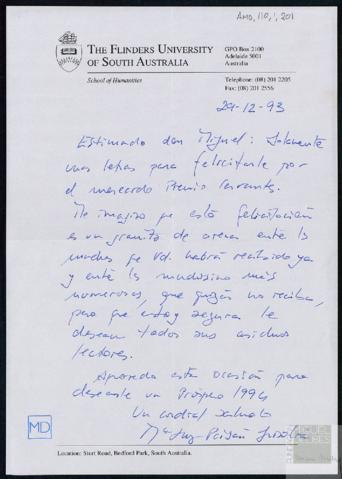 AMD, 110, 1, 201
THE FLINDERS UNIVERSITY
OF SOUTH AUSTRALIA
School of Humanities
GPO Box 2100
Adelaide 5001
Australia
Telephone: (08) 201 2205
Fax: (08) 201 2556
29-12-93
Estimado don Miguel: Solamente
unas letras para felicitarle por
el merecido Premio Cervantes.
Me imagino que esta felicitación
es un granito de arena entre las
muchas que Vd. habrá recibido ya
y entre las muchísimo más
numerosas, que quizás no reciba,
pero que estoy segura le
desean todos sus asiduos
lectores.
Aprovecho esta ocasión para
desearle un Próspero 1994
Un cordial saludo
Mª Luz
MD
Location: Sturt Road, Bedford Park, South Australia.